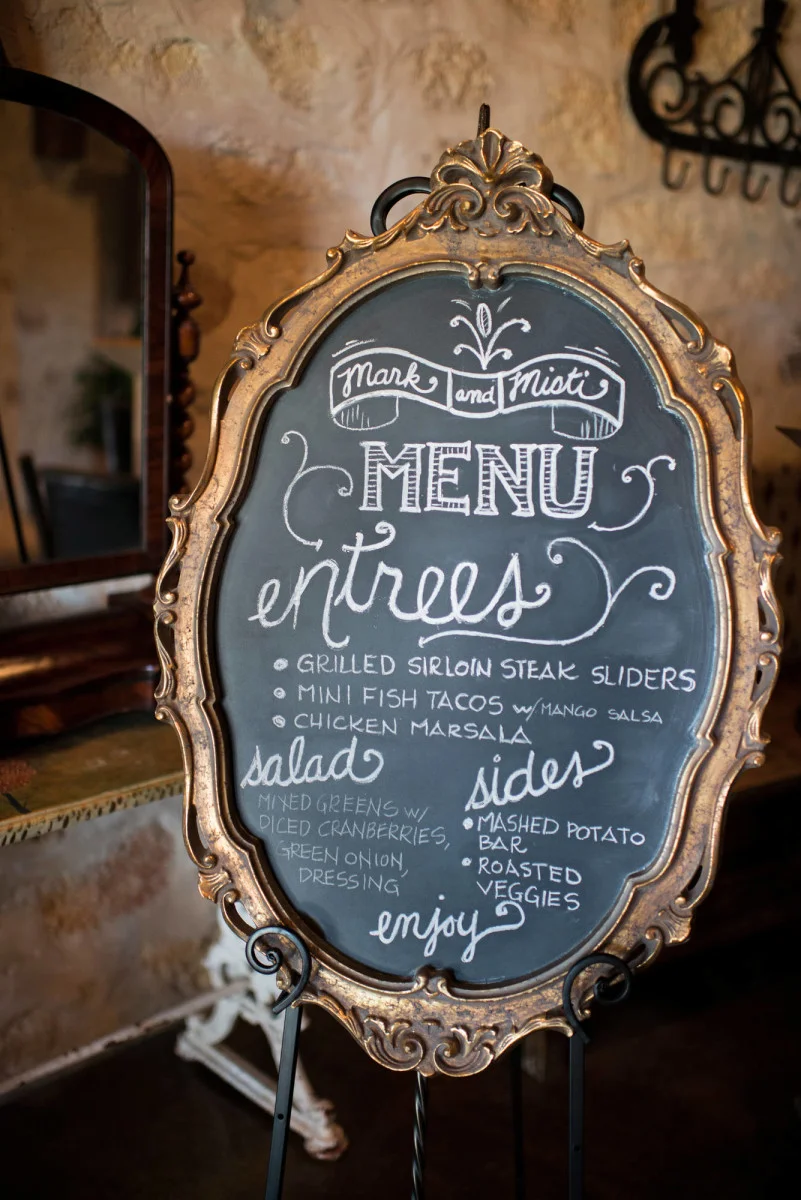 Mark and Misti
MENU
entrees
• GRILLED SIRLOIN STEAK SLIDERS
• MINI FISH TACOS w/ MANGO SALSA
• CHICKEN MARSALA
salad
MIXED GREENS W/
DICED CRANBERRIES,
GREEN ONION,
DRESSING
sides
• MASHED POTATO
BAR
• ROASTED
VEGGIES
enjoy